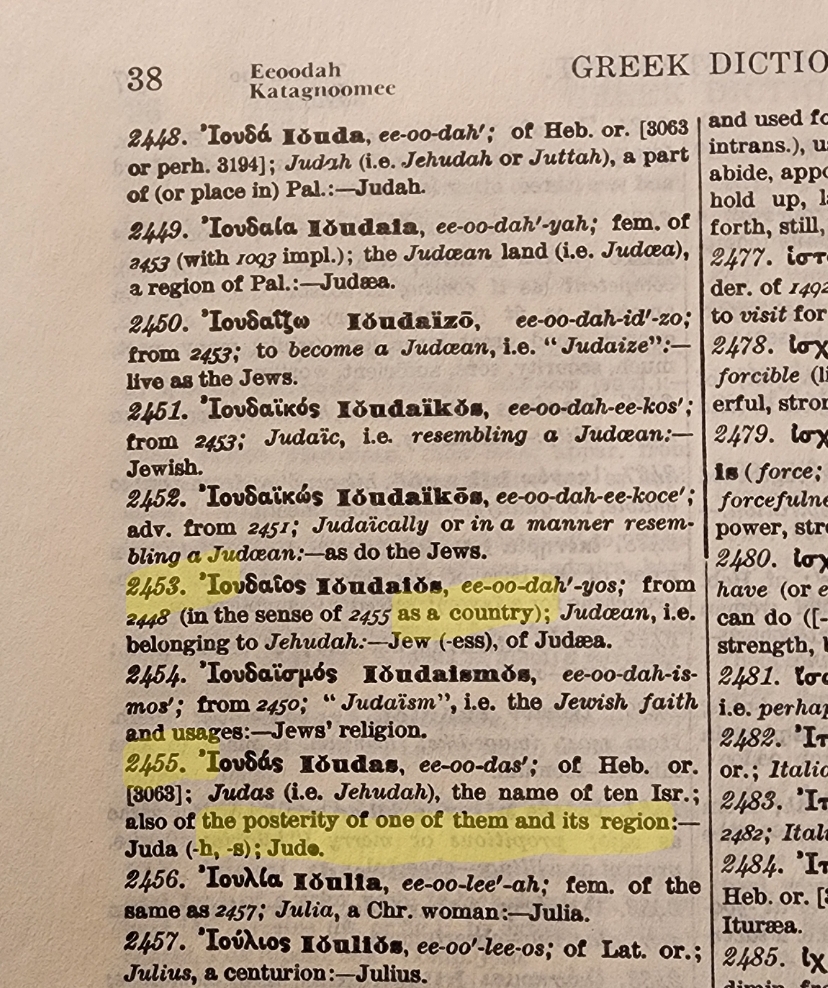 38
Eeoodah
Katagnoomee
GREEK DICTIO
2448. Ἰουδά Iŏuda, ee-oo-dah′; of Heb. or. [3063
or perh. 3194]; Judah (i.e. Jehudah or Juttah), a part
of (or place in) Pal.:—Judah.
2449. Ἰουδαία Iŏudaia, ee-oo-dah′-yah; fem. of
2453 (with 1093 impl.); the Judæan land (i.e. Judæa),
a region of Pal.:—Judæa.
2450. Ἰουδαΐζω Iŏudaïzō, ee-oo-dah-id′-zo;
from 2453; to become a Judæan, i.e. “Judaize”:—
live as the Jews.
2451. Ἰουδαϊκός Iŏudaïkŏs, ee-oo-dah-ee-kos′;
from 2453; Judaïc, i.e. resembling a Judæan:—
Jewish.
2452. Ἰουδαϊκώς Iŏudaïkōs, ee-oo-dah-ee-koce′;
adv. from 2451; Judaïcally or in a manner resem-
bling a Judæan:—as do the Jews.
2453. Ἰουδαῖος Iŏudaiŏs, ee-oo-dah′-yos; from
2448 (in the sense of 2455 as a country); Judæan, i.e.
belonging to Jehudah:—Jew (-ess), of Judæa.
2454. Ἰουδαϊσμός Iŏudaismŏs, ee-oo-dah-is-
mos′; from 2450; “Judaïsm”, i.e. the Jewish faith
and usages:—Jews’ religion.
2455. Ἰουδάς Iŏudas, ee-oo-das′; of Heb. or.
[3063]; Judas (i.e. Jehudah), the name of ten Isr.;
also of the posterity of one of them and its region:—
Juda (-h, -s); Jude.
2456. Ἰουλία Iŏulia, ee-oo-lee′-ah; fem. of the
same as 2457; Julia, a Chr. woman:—Julia.
2457. Ἰούλιος Iŏuliŏs, ee-oo′-lee-os; of Lat. or.;
Julius, a centurion:—Julius.
and used fo
intrans.), u
abide, appo
hold up, l
forth, still,
2477. ἱστ
der. of 1492
to visit for
2478. ἰσχ
forcible (li
erful, stron
2479. ἰσχ
is (force;
forcefulne
power, stre
2480. ἰσχ
have (or e
can do ([-
strength,
2481. ἴσω
i.e. perhap
2482. Ἰτ
or.; Italia
2483. Ἰτ
2482; Itali
2484. Ἰτ
Heb. or. [
Ituræa.
2485. ἰχ
dimin. fro